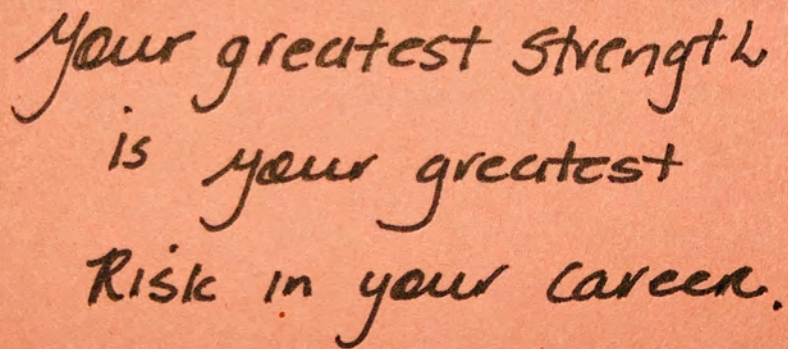 Your greatest strength
is your greatest
Risk in your career.